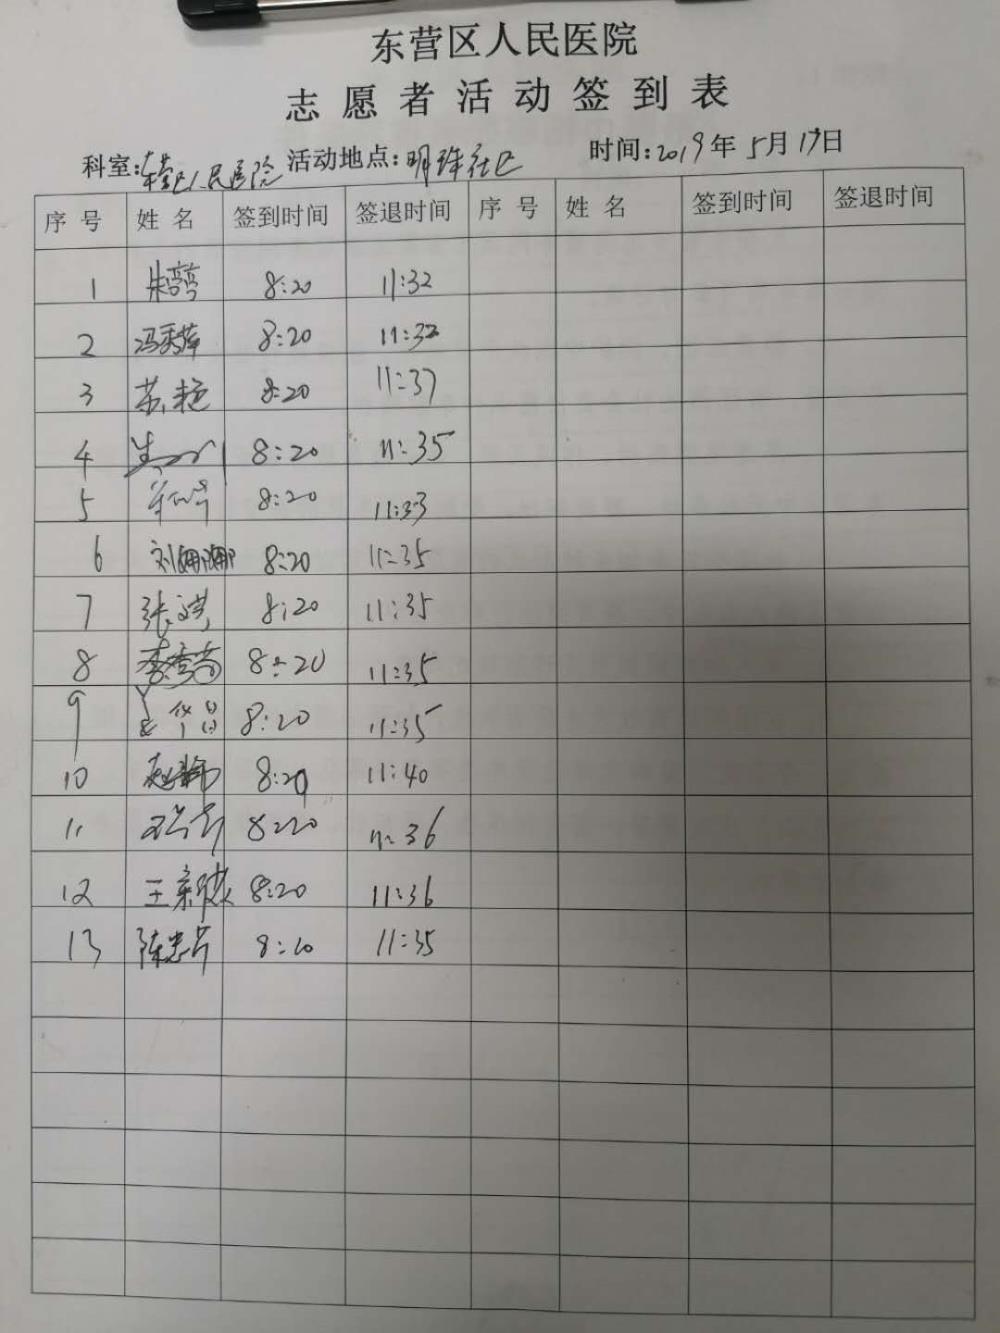 东营区人民医院
志愿者活动签到表
科室:东营区人民医院 活动地点:明珠社区 时间:2019年5月17日
序号 姓名 签到时间 签退时间 序号 姓名 签到时间 签退时间
1 8:20 11:32
2 冯秀萍 8:20 11:32
3 苏艳 8:20 11:37
4 8:20 11:35
5 8:20 11:33
6 刘娜娜 8:20 11:35
7 张 8:20 11:35
8 李 8:20 11:35
9 8:20 11:35
10 赵 8:20 11:40
11 8:20 11:36
12 王 8:20 11:36
13 陈忠芹 8:20 11:35